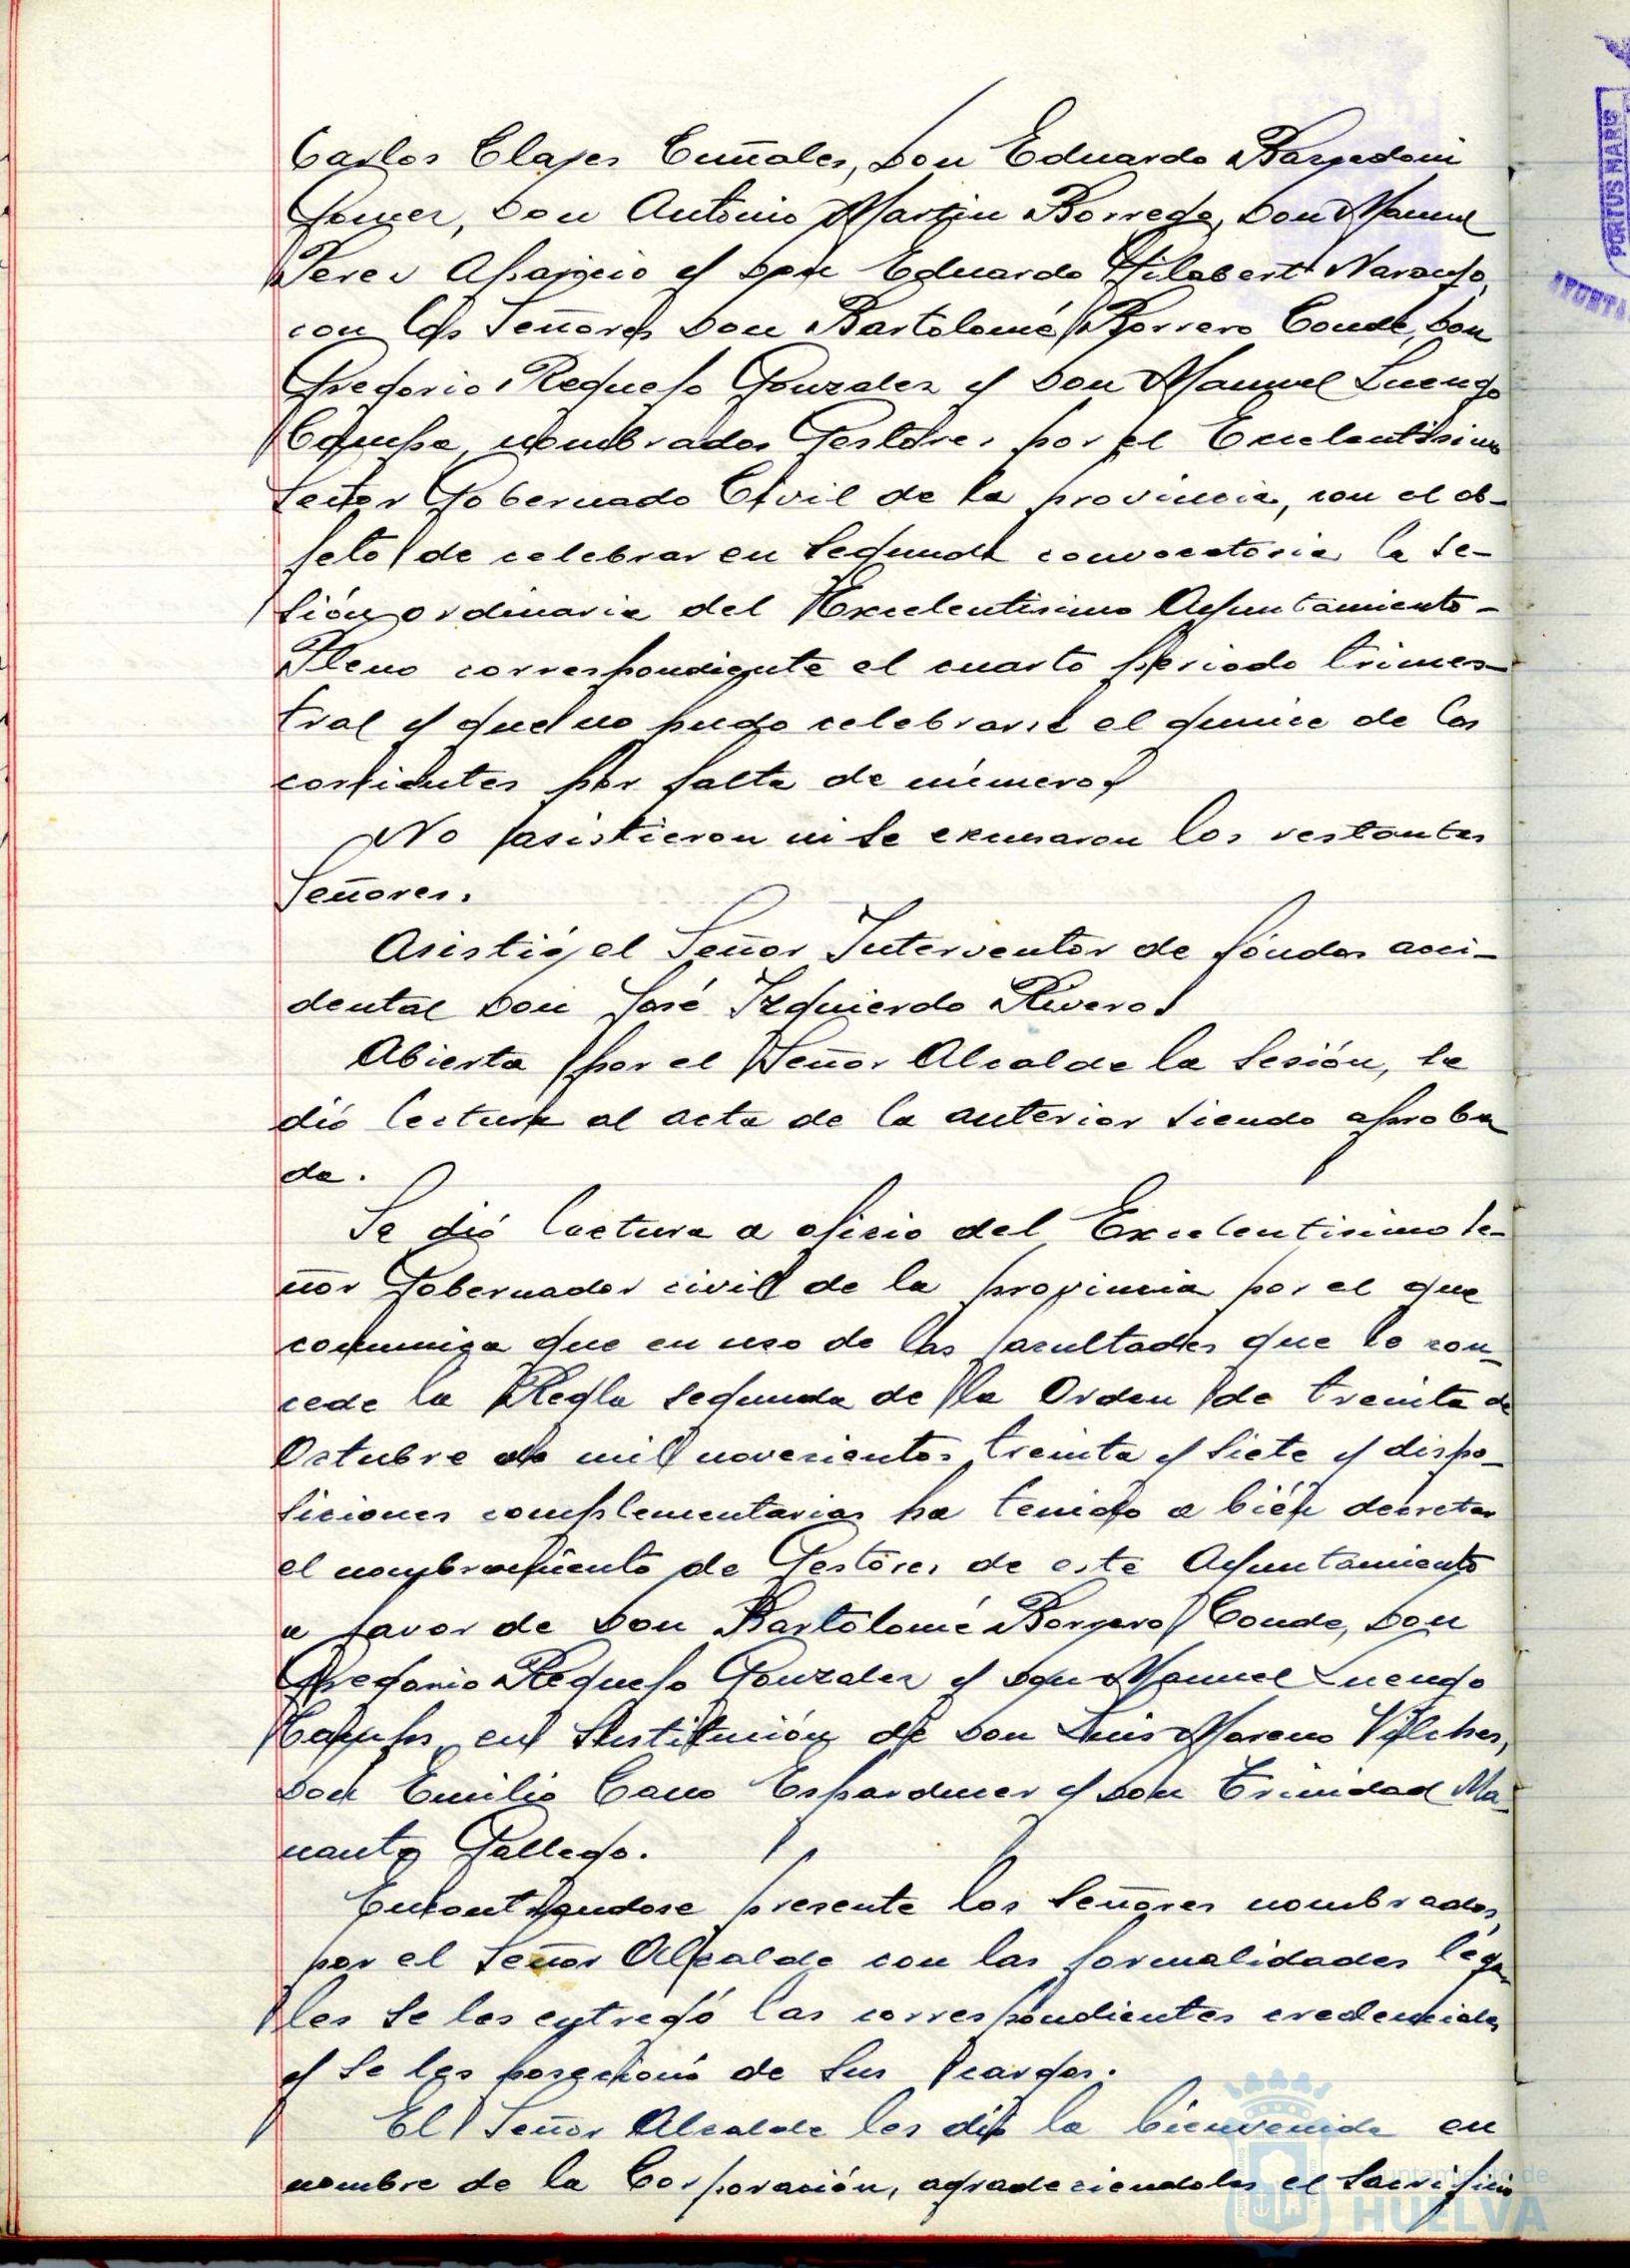 Carlos Clapes Cuñales, Don Eduardo Bargadoni
Gomez, Don Antonio Martin Borrego, Don Manuel
Perez Aparicio y Don Eduardo Gilabert Naranjo,
con los Señores Don Bartolomé Borrero Conde, Don
Gregorio Requejo Gonzalez y Don Manuel Luengo
nombrados Gestores por el Excelentisimo
Señor Gobernado Civil de la provincia, con el ob-
jeto de celebrar en segunda convocatoria la se-
sión ordinaria del Excelentisimo Ayuntamiento-
Pleno correspondiente el cuarto periodo trimes-
tral y que no pudo celebrarse el quince de los
corrientes por falta de número.
No asistieron ni se excusaron los restantes
Señores.
Asistió el Señor Interventor de fondos acci-
dental Don José Izquierdo Rivero.
Abierta por el Señor Alcalde la sesión, se
dió lectura al acta de la anterior siendo aproba
da.
Se dió lectura a oficio del Excelentisimo Se-
ñor Gobernador civil de la provincia por el que
comuniga que en uso de las facultades que le con-
cede la Regla segunda de la Orden de treinta de
Octubre de mil novecientos treinta y siete y dispo-
siciones complementarias ha tenido a bién decretar
el nombramiento de Gestores de este Ayuntamiento
a favor de Don Bartolomé Borrero Conde, Don
Gregorio Requejo Gonzalez y Don Manuel Luengo
en sustitución de Don Luis Moreno Vilches,
Don Emilio Cano Esparducer y Don Trinidad Ma-
nanto Gallego.
Encontrandose presente los Señores nombrados,
por el Señor Alcalde con las formalidades lega
les se les entregó las correspondientes credenciales
y se les posecionó de sus cargos.
El Señor Alcalde les dió la bienvenida en
nombre de la Corporación, agradeciendoles el sacrificio
PORTUS MARIS
AYUNTA
Ayuntamiento de
HUELVA